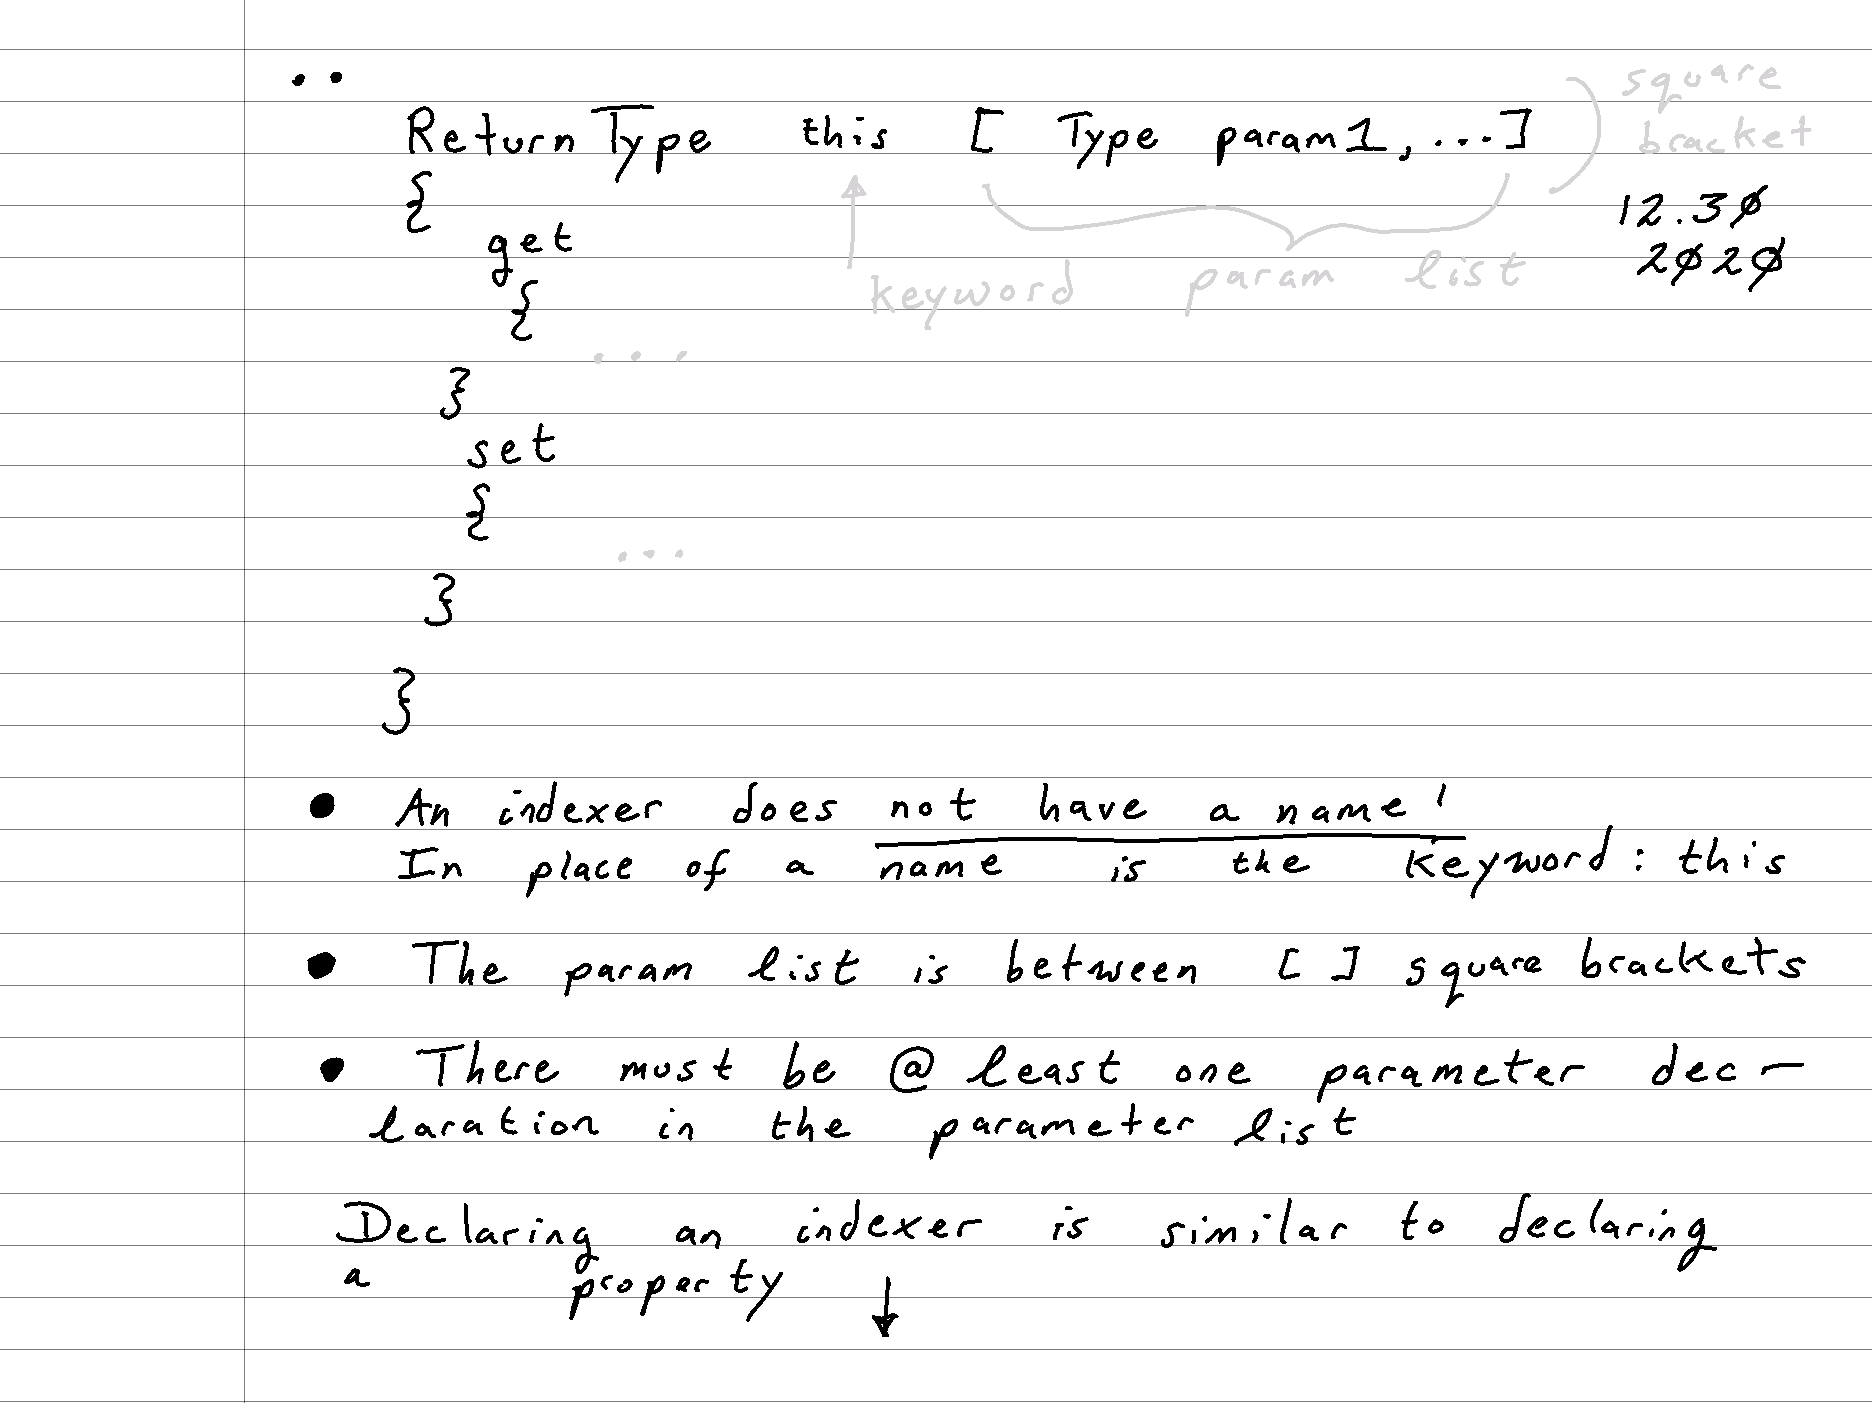 ..
ReturnType this [ Type param1, ...]
square
bracket
{
12.30
2020
get
keyword param list
{
...
}
set
{
...
}
}
• An indexer does not have a name!
In place of a name is the keyword: this
• The param list is between [ ] square brackets
• There must be @ least one parameter dec-
laration in the parameter list
Declaring an indexer is similar to declaring
a property ↓